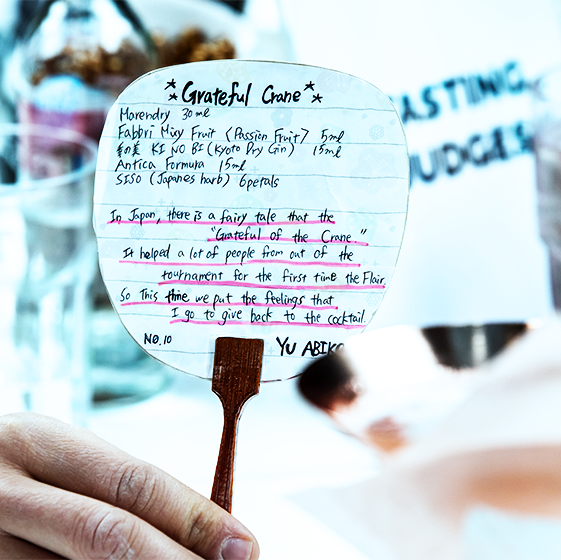 *Grateful Crane*
Marendry 30ml
Fabbri Mixy Fruit (Passion Fruit) 5ml
KI NO BI (Kyoto Dry Gin) 15ml
Antica Formura 15ml
SISO (Japanes harb) 6petals
In Japan, there is a fairy tale that the
"Grateful of the Crane."
It helped a lot of people from out of the
tournament for the first time the Flair
So This time we put the feelings that
I go to give back to the cocktail
NO.10
YU ABIKO
TASTING
JUDGES